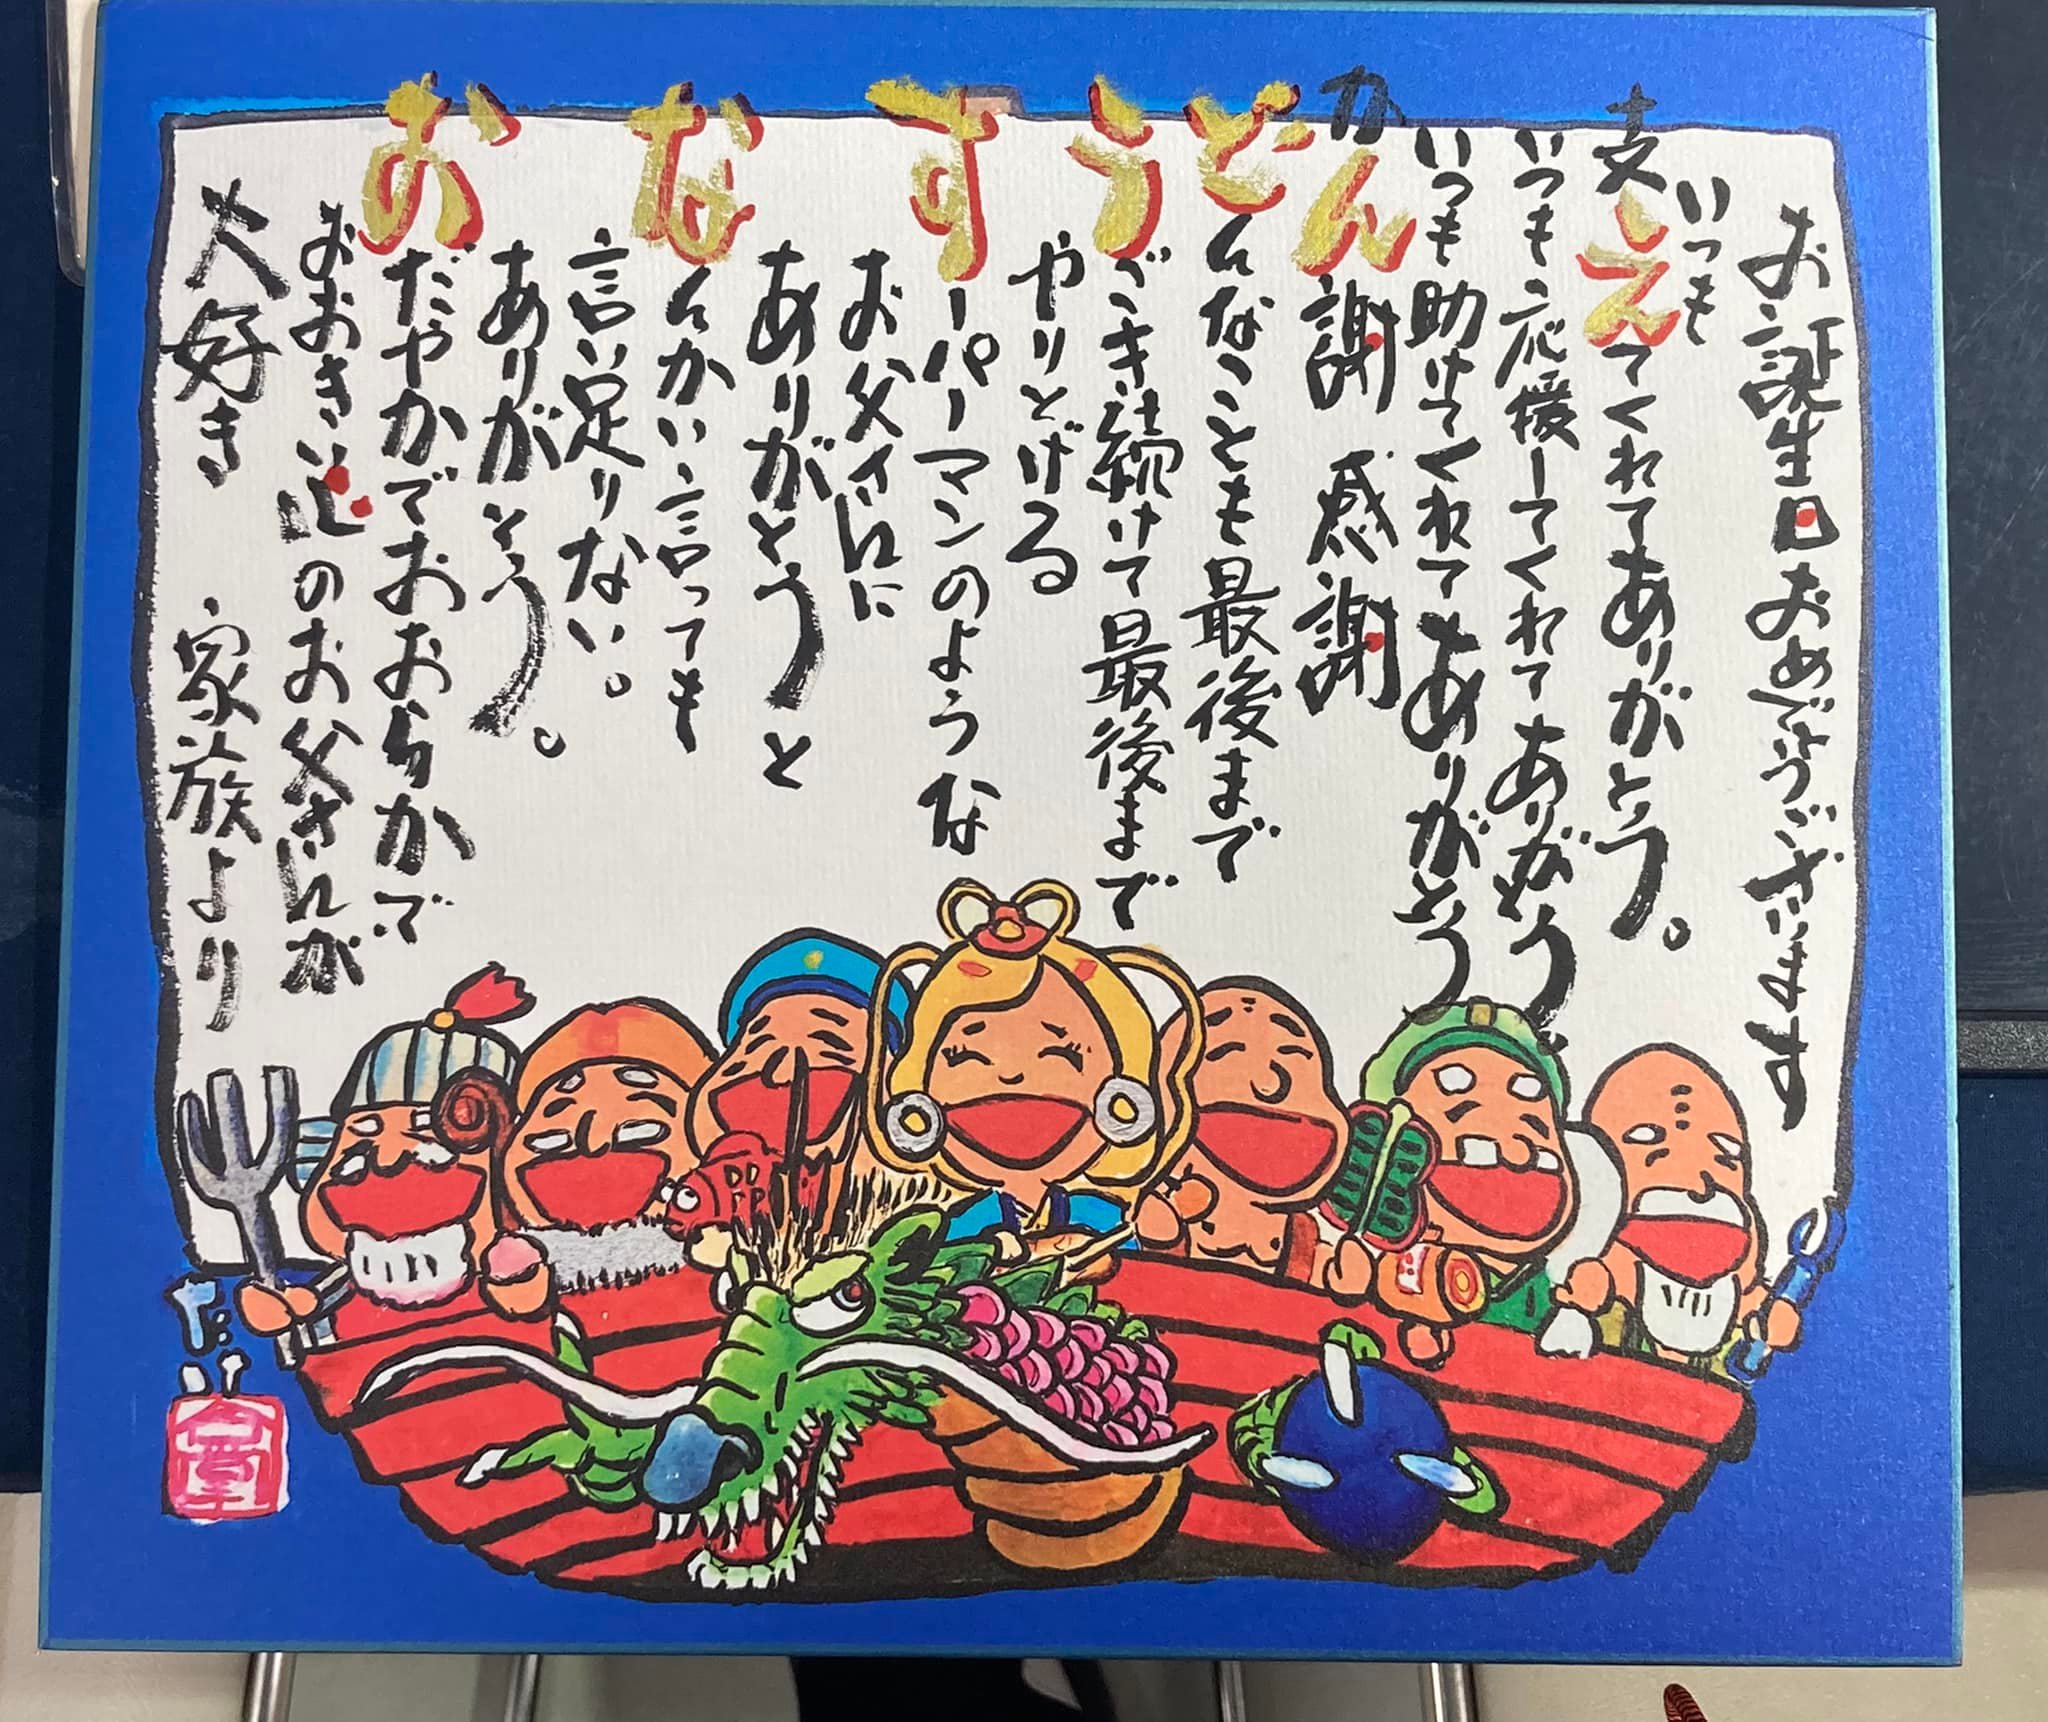 お誕生日おめでとうございます
いつも
支えてくれてありがとう。
いつも応援してくれてありがとう。
いつも助けてくれてありがとう
かん謝 感謝
どんなことも最後まで
うごき続けて最後まで
やりとげる
すーパーマンのような
お父さんに
ありがとうと
なんかい言っても
言い足りない。
ありがとう。
おだやかでおおらかで
おおきい心のお父さんが
大好き 家族より